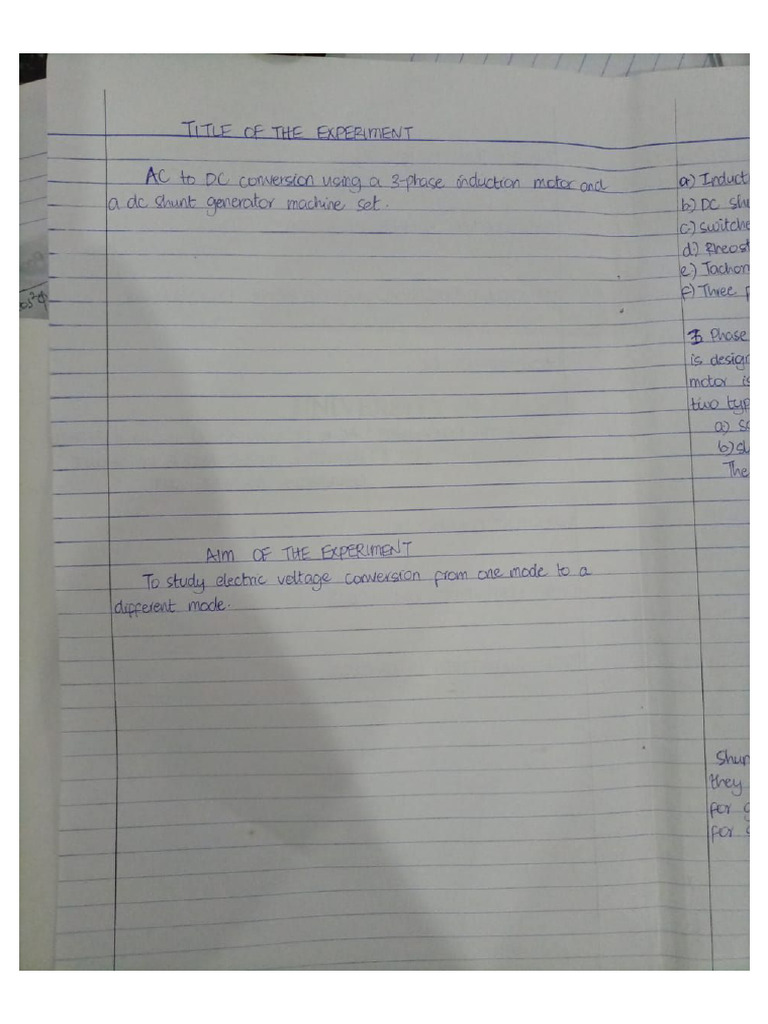 TITLE OF THE EXPERIMENT
AC to DC conversion using a 3-phase induction motor and
a dc shunt generator machine set.
AIM OF THE EXPERIMENT
To study electric voltage conversion from one mode to a
different mode.
a) Induct
b) DC shu
c) Switche
d) Rheost
e) Tachom
f) Three p
3 Phase
is desig
motor is
two typ
a)
b)
The
Shun
they
for
for